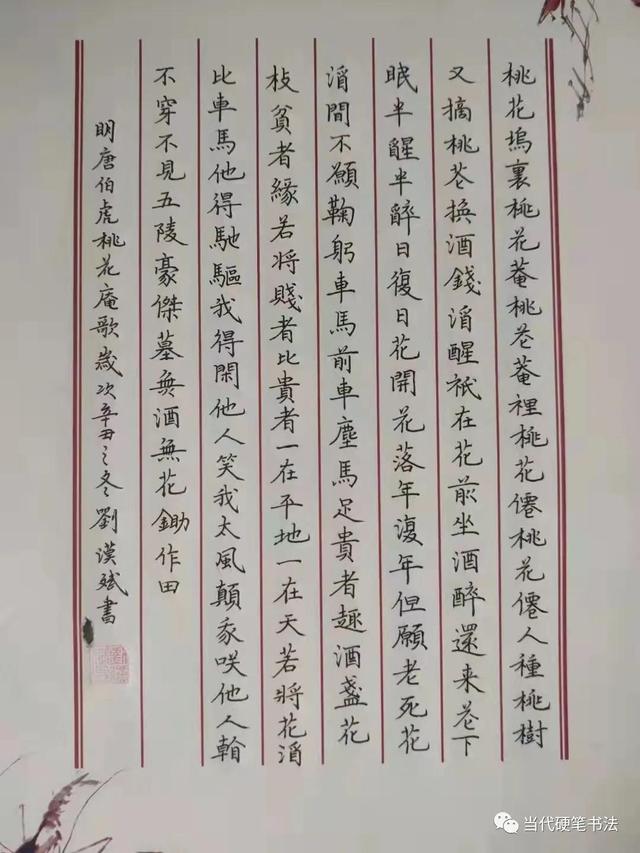 桃花塢裏桃花菴桃花菴裡桃花僊桃花僊人種桃樹
又摘桃花換酒錢酒醒衹在花前坐酒醉還来花下
眠半醒半醉日復日花開花落年復年但願老死花
酒間不願鞠躬車馬前車塵馬足貴者趣酒盞花
枝貧者緣若将賤者比貴者一在平地一在天若將花酒
比車馬他得馳驅我得閑他人笑我太風顛我咲他人看
不穿不見五陵豪傑墓無酒無花鋤作田
明唐伯虎桃花庵歌歲次辛丑之冬劉漢斌書
当代硬笔书法